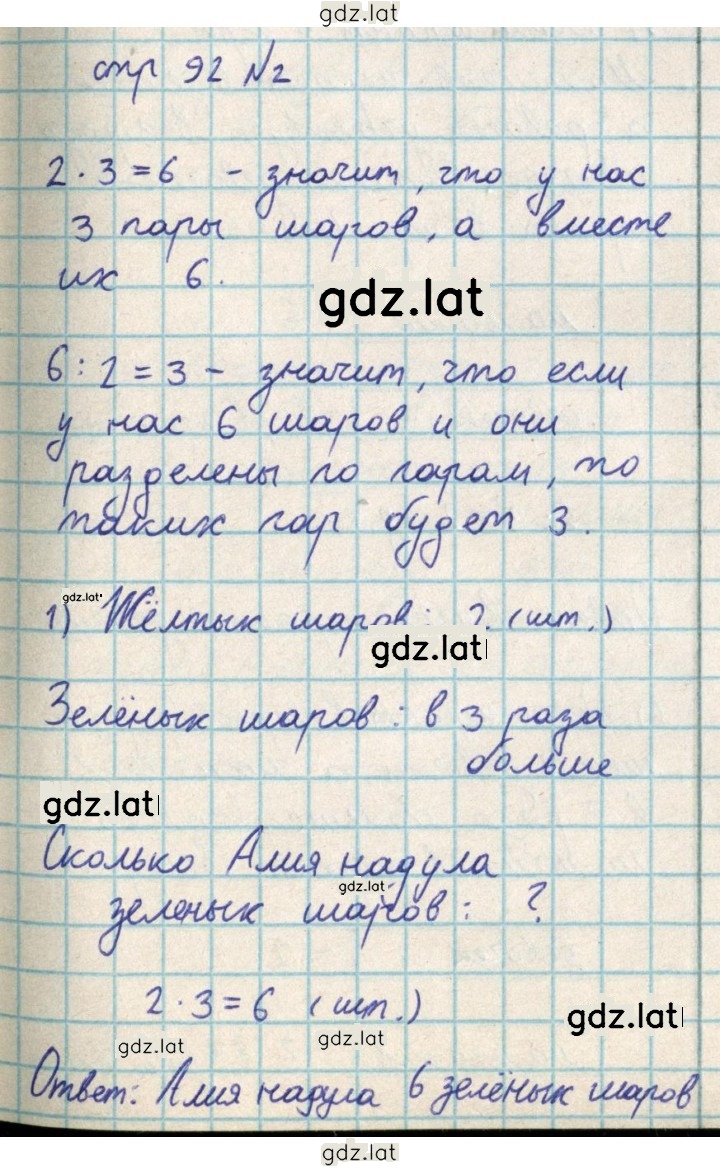 gdz.lat
стр 92 №2
2 · 3 = 6 - значит, что у нас
3 пары шаров, а вместе
их 6.
gdz.lat
6 : 2 = 3 - значит, что если
у нас 6 шаров и они
разделены по парам, то
таких пар будет 3.
gdz.lat
1) Жёлтых шаров: 2 (шт.)
gdz.lat
Зелёных шаров: в 3 раза
больше
gdz.lat
Сколько Алия надула
gdz.lat
зеленых шаров: ?
2 · 3 = 6 (шт.)
gdz.lat
gdz.lat
gdz.lat
Ответ: Алия надула 6 зелёных шаров
gdz.lat